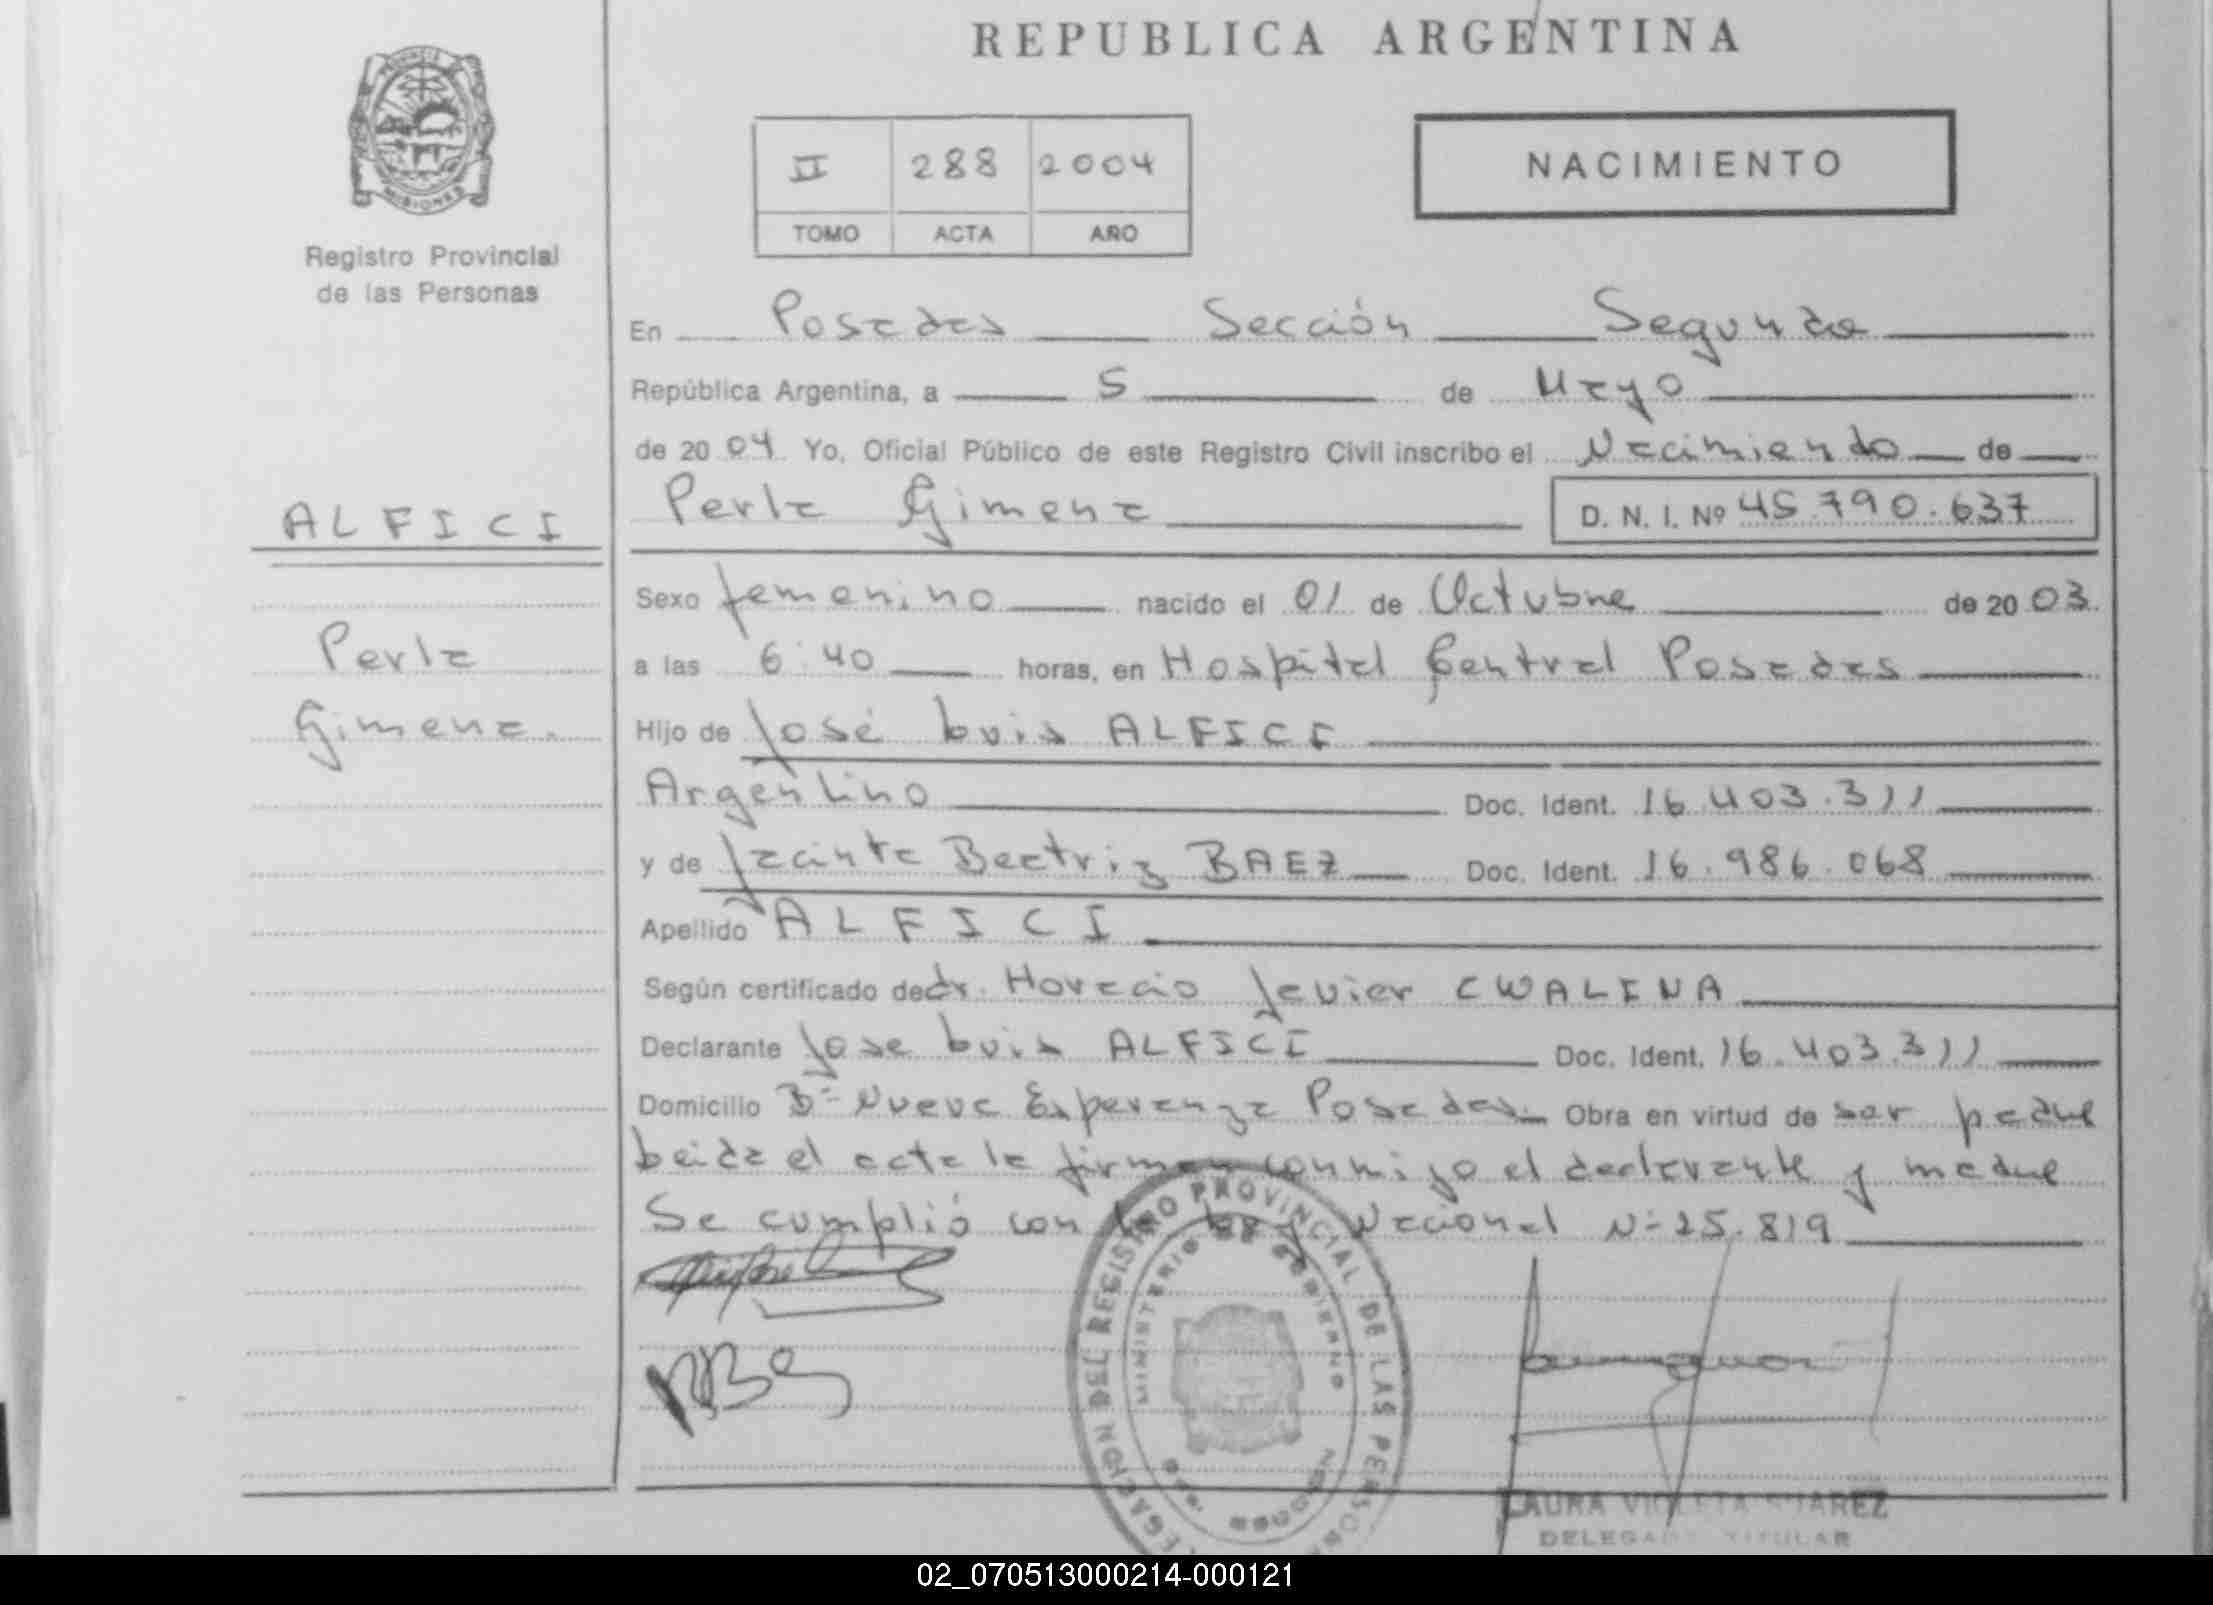 REPUBLICA ARGENTINA
PROVINCIA
MISIONES
Registro Provincial
de las Personas
II 288 2004
TOMO ACTA AÑO
NACIMIENTO
En Posadas Sección Segunda
República Argentina, a 5 de Mayo
de 2004 Yo, Oficial Público de este Registro Civil inscribo el Nacimiento de
ALFICI
Perla Gimena D. N. I. Nº 45.790.637
Sexo femenino nacido el 01 de Octubre de 2003
Perla
a las 6:40 horas, en Hospital Central Posadas
Gimena.
Hijo de José Luis ALFICI
Argentino Doc. Ident. 16.403.311
y de Jacinta Beatriz BAEZ Doc. Ident. 16.986.068
Apellido ALFICI
Según certificado de dr. Horacio Javier CWALINA
Declarante Jose Luis ALFICI Doc. Ident. 16.403.311
Domicilio Bº Nueva Esperanza Posadas. Obra en virtud de ser padre
Leida el acta la firman conmigo el declarante y madre
Se cumplió con la Ley Nacional Nº 25.819
DEL REGISTRO PROVINCIAL DE LAS PERSONAS
MINISTERIO DE GOBIERNO
LAURA VIOLETA SUAREZ
DELEGADA TITULAR
02_070513000214-000121